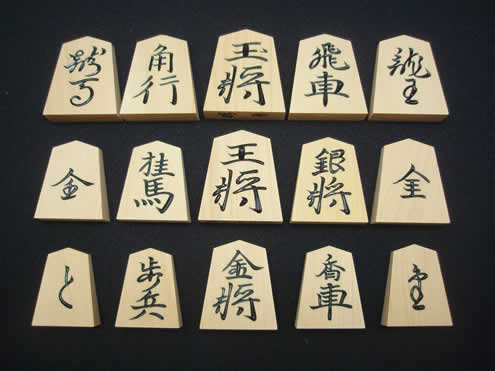 龍馬 角行 王将 飛車 龍王
桂馬 王将 銀将 全
と 歩兵 金将 香車